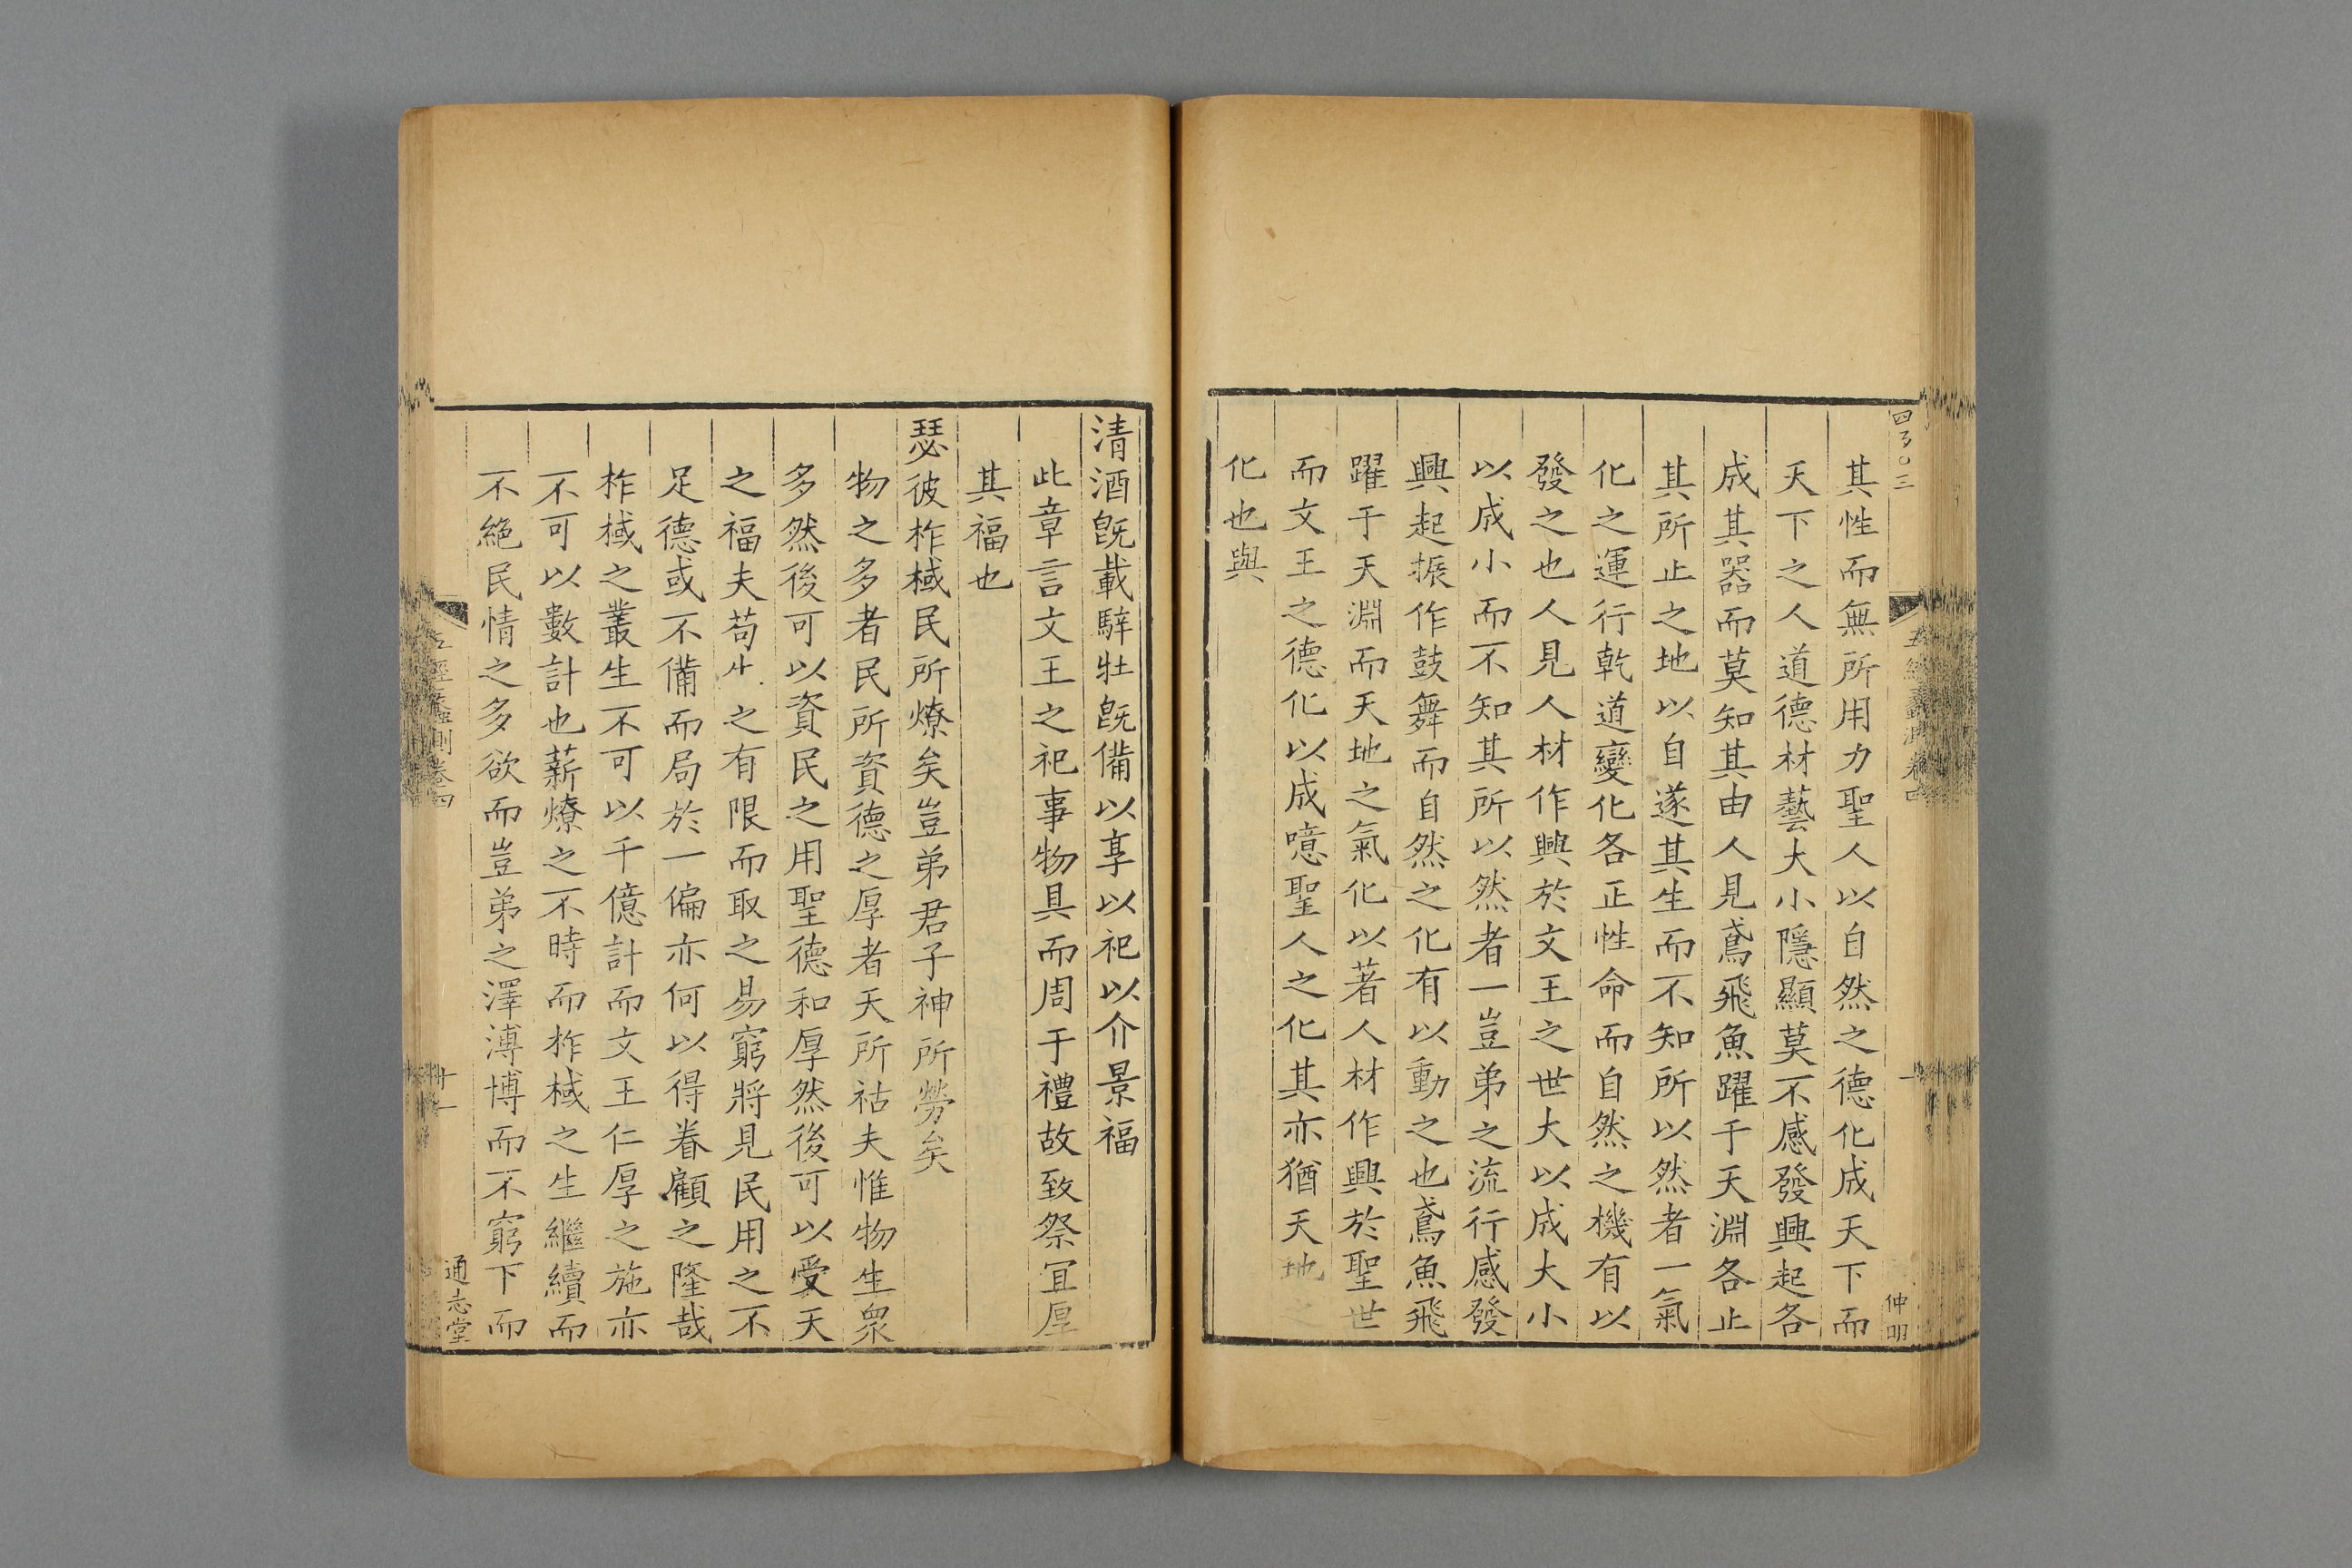 其性而無所用力聖人以自然之德化成天下而
天下之人道德材藝大小隱顯莫不感發興起各
成其器而莫知其由人見鳶飛魚躍于天淵各止
其所止之地以自遂其生而不知所以然者一氣
化之運行乾道變化各正性命而自然之機有以
發之也人見人材作興於文王之世大以成大小
以成小而不知其所以然者一豈弟之流行感發
興起振作鼓舞而自然之化有以動之也鳶魚飛
躍于天淵而天地之氣化以著人材作興於聖世
而文王之德化以成噫聖人之化其亦猶天地
化也與
仲明
清酒旣載騂牡旣備以享以祀以介景福
此章言文王之祀事物具而周于禮故致祭冝厚
其福也
瑟彼柞棫民所燎矣豈弟君子神所勞矣
物之多者民所資德之厚者天所祜夫惟物生衆
多然後可以資民之用聖德和厚然後可以受天
之福夫苟之有限而取之易窮將見民用之不
足德或不備而局於一偏亦何以得眷顧之隆哉
柞棫之叢生不可以千億計而文王仁厚之施亦
不可以數計也薪燎之不時而柞棫之生繼續而
不絕民情之多欲而豈弟之澤溥博而不窮下而
五經蠡測卷四
十一
通志堂